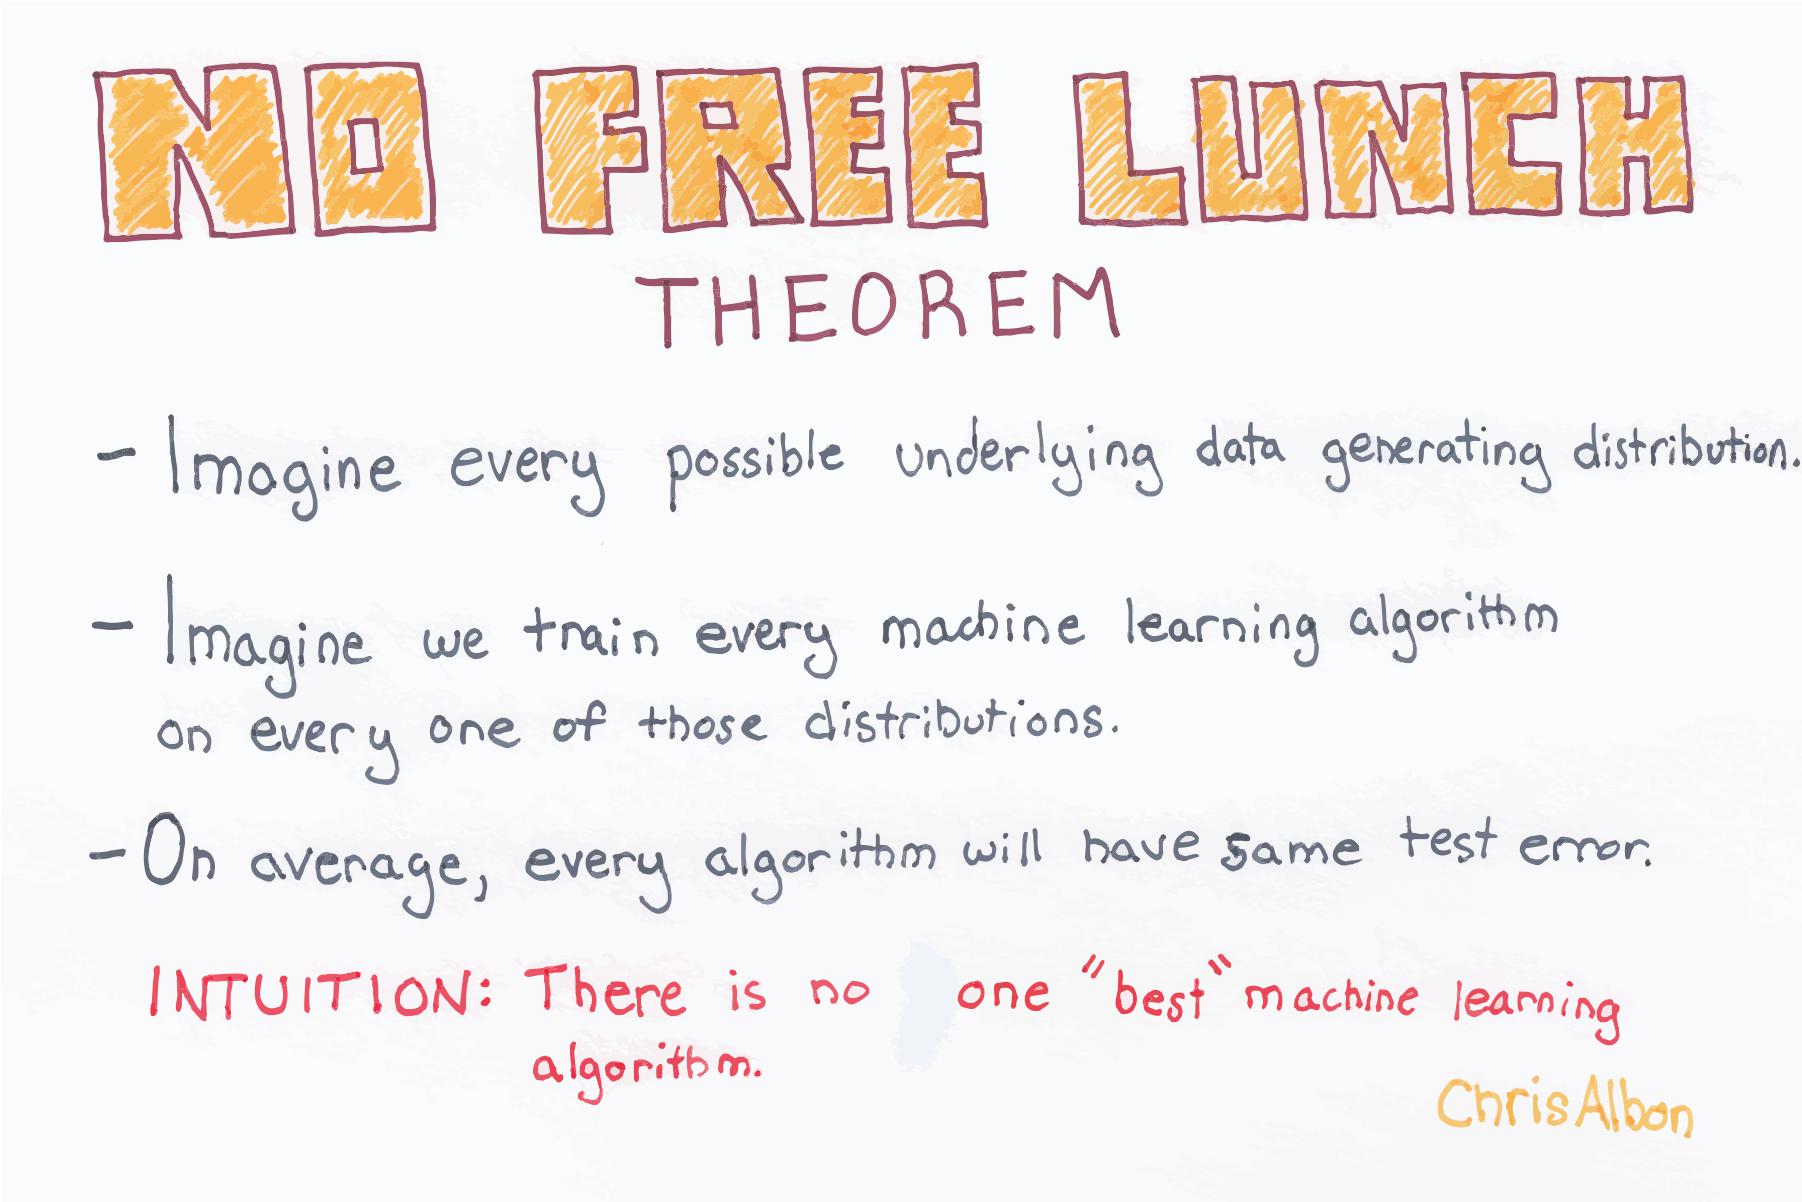 NO FREE LUNCH
THEOREM
- Imagine every possible underlying data generating distribution.
- Imagine we train every machine learning algorithm
on every one of those distributions.
- On average, every algorithm will have same test error.
INTUITION: There is no one "best" machine learning
algorithm.
Chris Albon